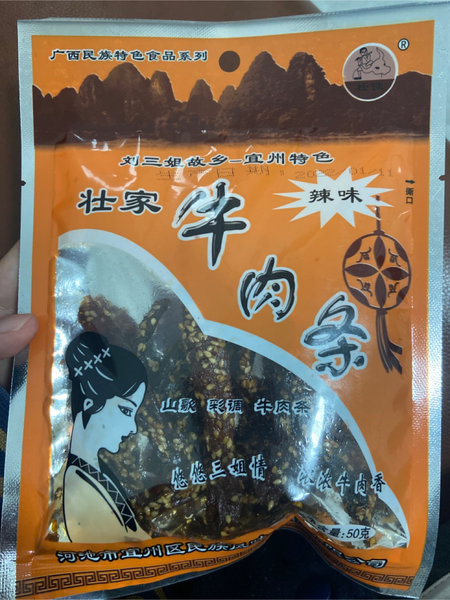 广西民族特色食品系列
®
刘三姐故乡—宜州特色
壮家
牛肉条
辣味
撕口
山歌 彩调 牛肉条
悠悠三姐情
浓浓牛肉香
量:50克
河池市宜州区民族
公司